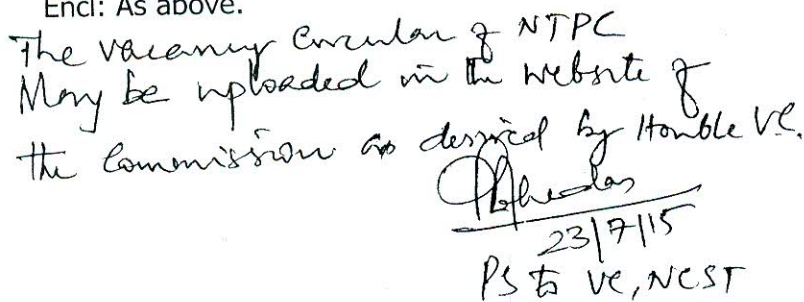 Encl: As above.
The vacancy circular of NTPC
May be uploaded in the website of
the Commission as desired by Honble VC.
23/7/15
PS to VC, NCST